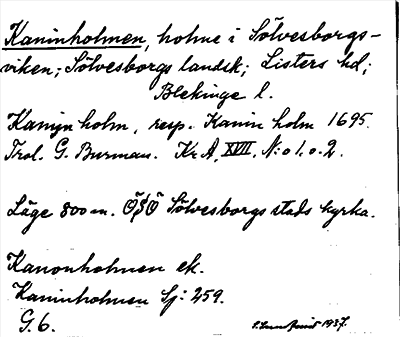 Kaninholmen, holme i Sölvesborgs-
viken; Sölvesborgs landsk; Listers hd;
Blekinge l.
Kanijn holm, resp. Kanin holm 1695.
Trol. G. Burman. Kr. A, XVII, N:o 1. o. 2.
Läge 800 m. ÖSÖ Sölvesborgs stads kyrka.
Kanonholmen ek.
Kaninholmen Sj: 259.
G. 6.
1937.